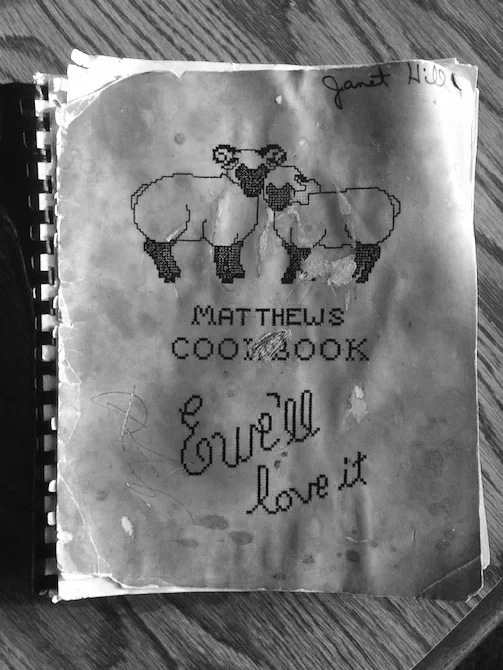 Janet Hill
MATTHEWS
COOKBOOK
Ewe'll
love it